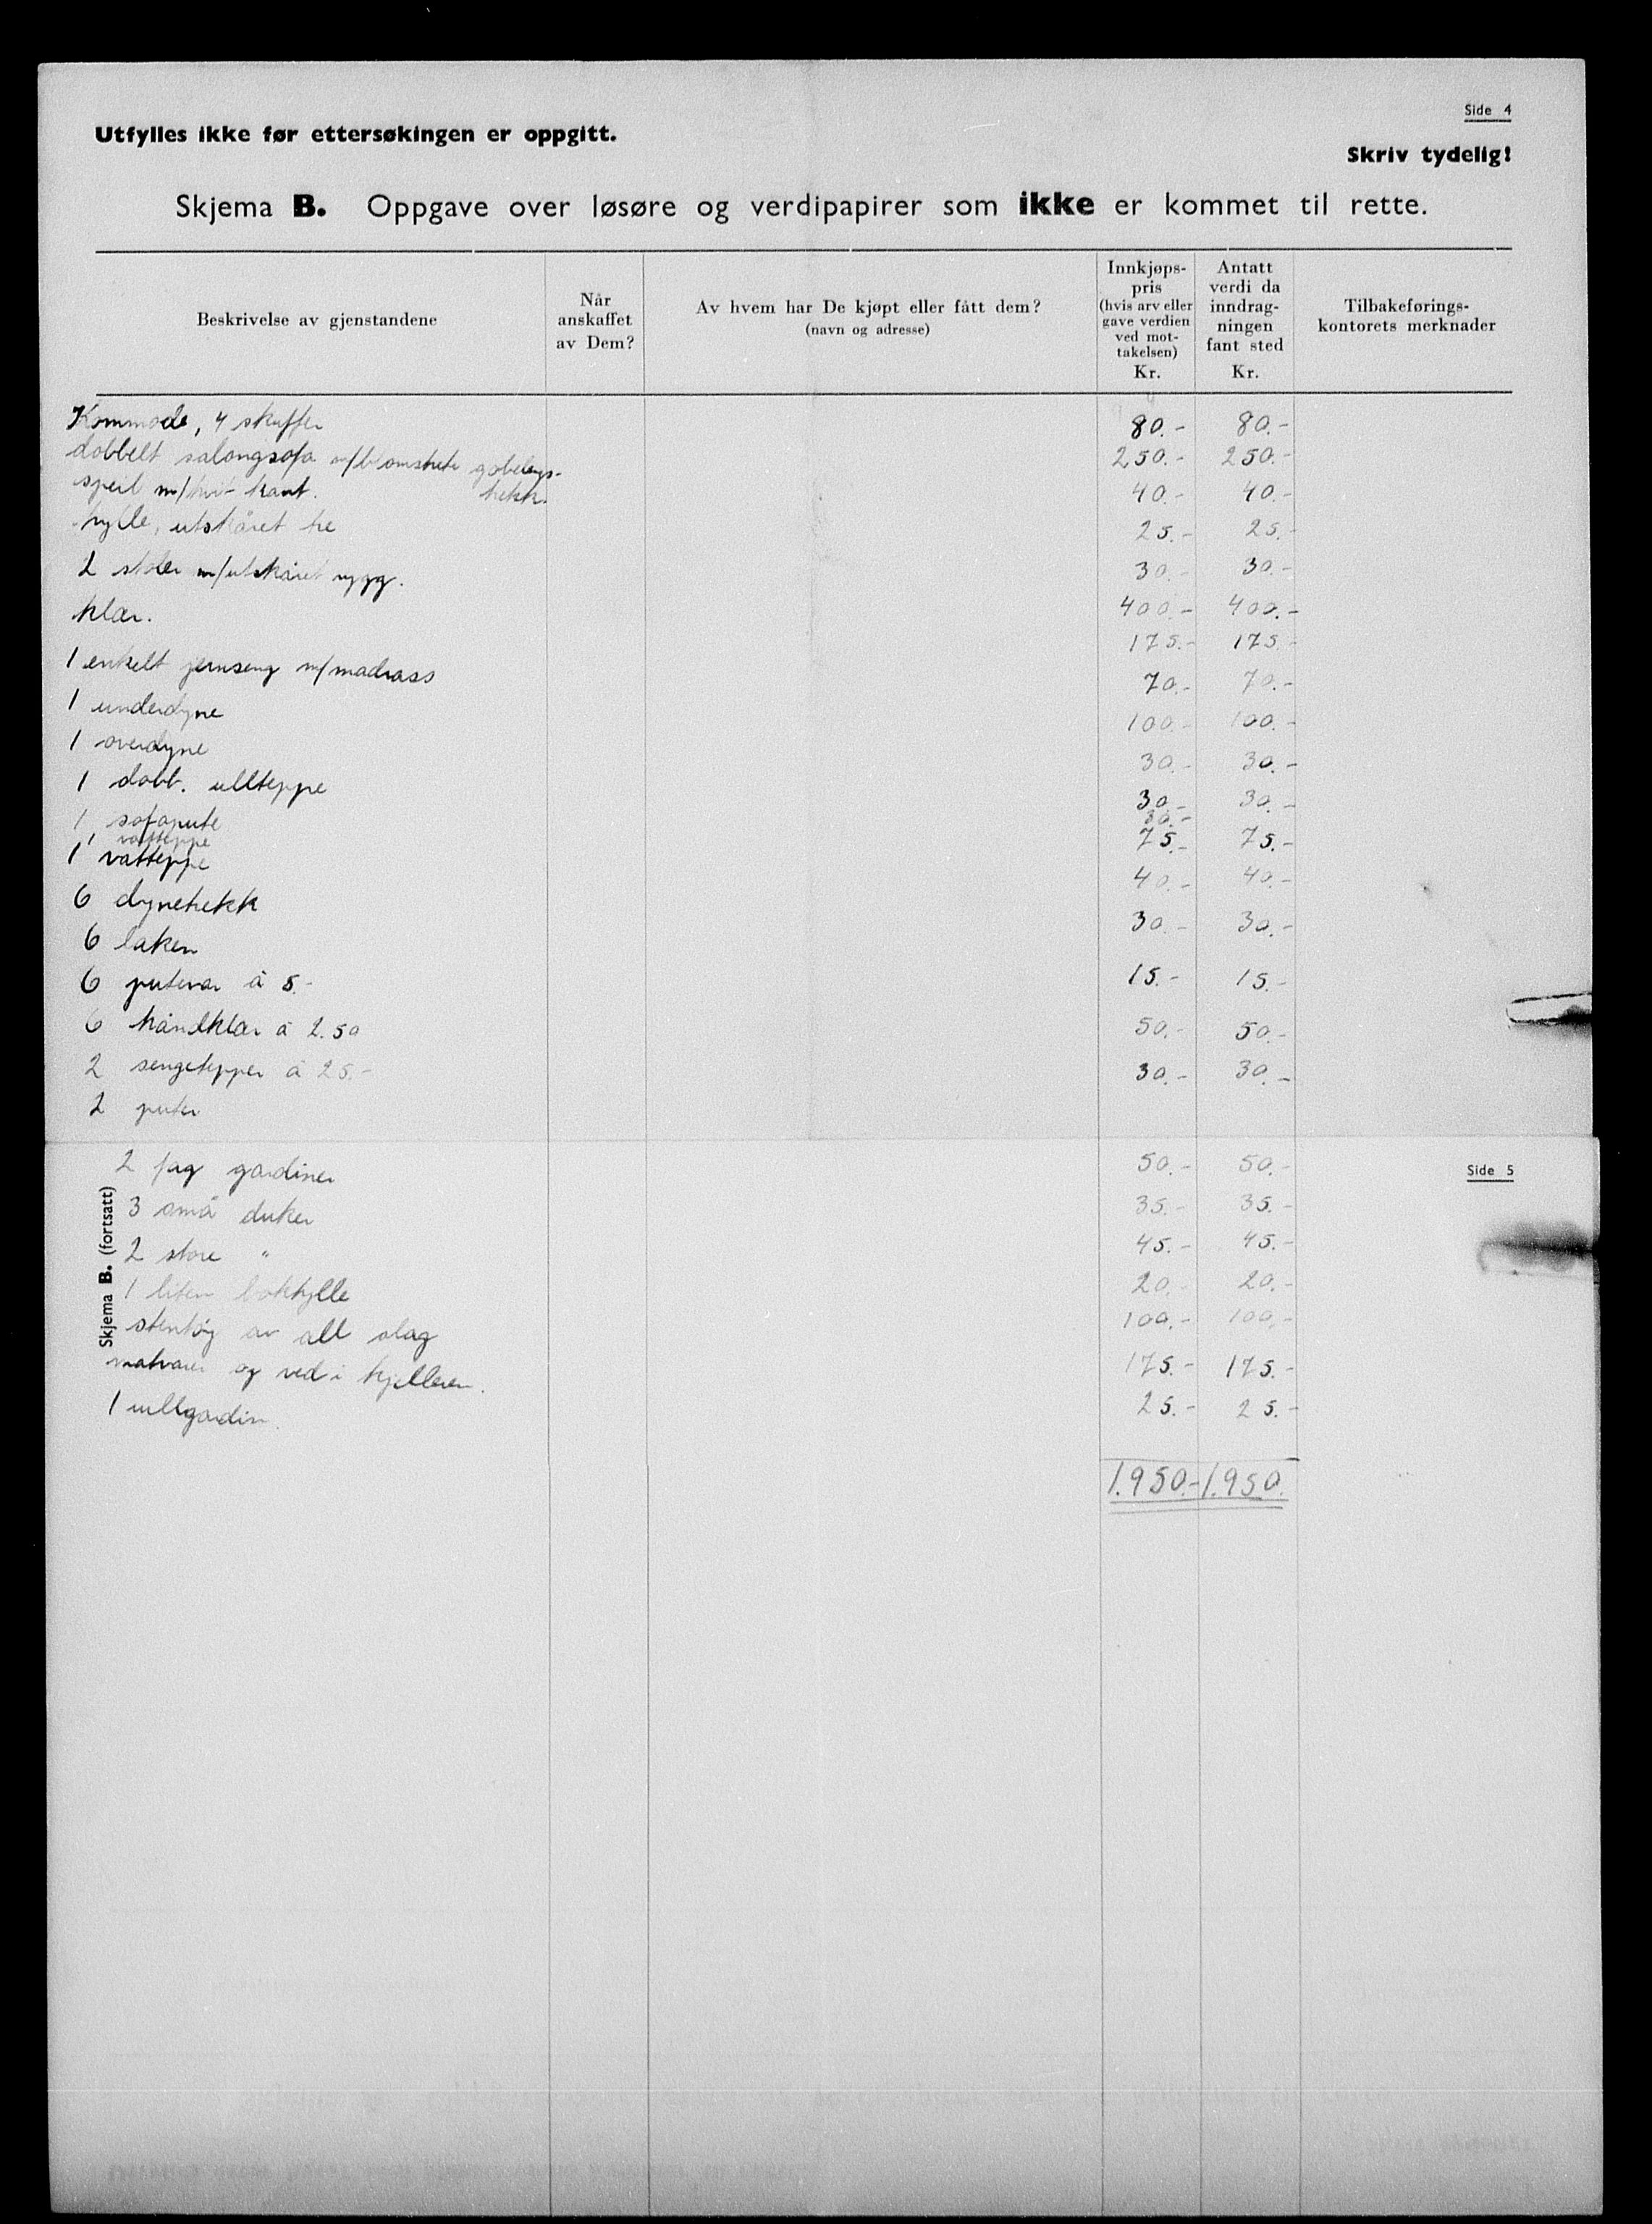 Side 4
Utfylles ikke før ettersøkingen er oppgitt.
Skriv tydelig!
Skjema B. Oppgave over løsøre og verdipapirer som ikke er kommet til rette.
Beskrivelse av gjenstandene
Når anskaffet av Dem?
Av hvem har De kjøpt eller fått dem? (navn og adresse)
Innkjøps-pris (hvis arv eller gave verdien ved mot-takelsen) Kr.
Antatt verdi da inndrag-ningen fant sted Kr.
Tilbakeførings-kontorets merknader
Kommode, 4 skuffer 80.- 80.-
dobbelt salongsofa m/blomstrete gobelengs- 250.- 250.-
trekk.
speil m/hvit kant. 40.- 40.-
hylle, utskåret tre 25.- 25.-
2 stoler m/utskåret rygg. 30.- 30.-
klær. 400.- 400.-
1 enkelt jernseng m/madrass 175.- 175.-
1 underdyne 70.- 70.-
1 overdyne 100.- 100.-
1 dobb. ullteppe 30.- 30.-
1 sofapute 30.- 30.-
1 vatteppe 80.-
1 vatteppe 75.- 75.-
6 dynetrekk 40.- 40.-
6 laken
6 putevar à 5.- 30.- 30.-
6 håndklær à 2.50 15.- 15.-
2 sengetepper à 25.- 50.- 50.-
2 puter 30.- 30.-
Side 5
Skjema B. (fortsatt)
2 fag gardiner 50.- 50.-
3 små duker 35.- 35.-
2 store " 45.- 45.-
1 liten bokhylle 20.- 20.-
stentøy av all slag 100.- 100.-
matvarer og ved i kjelleren. 175.- 175.-
1 rullgardin. 25.- 25.-
1.950.- 1.950.